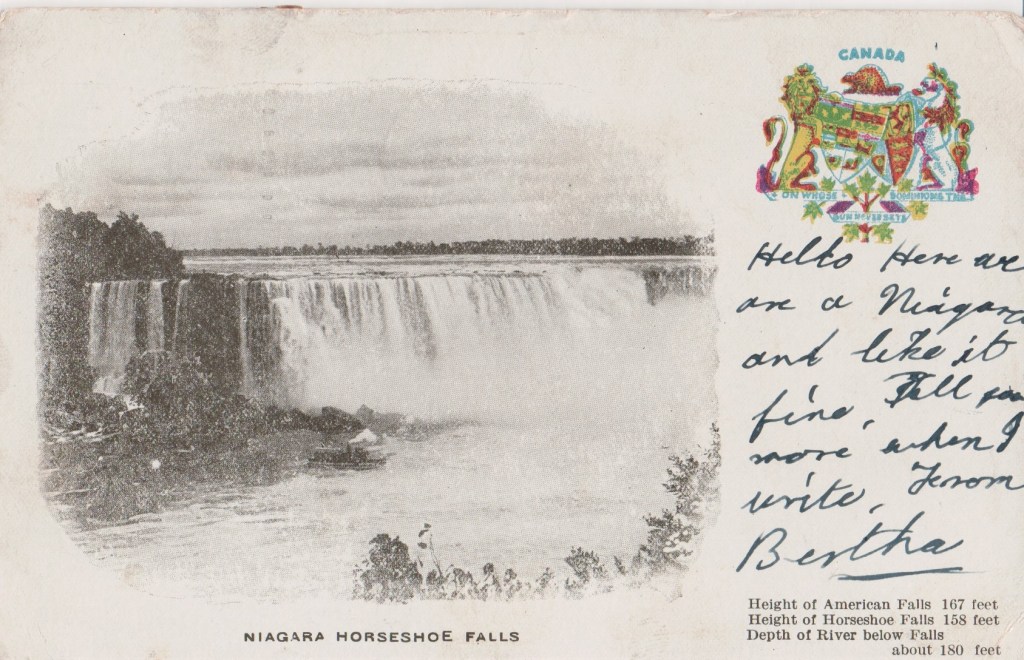 CANADA
ON WHOSE DOMINIONS THE
SUN NEVER SETS
Hello Here we
are a Niagara
and like it
fine, Tell you
more when I
write, From
Bertha
NIAGARA HORSESHOE FALLS
Height of American Falls 167 feet
Height of Horseshoe Falls 158 feet
Depth of River below Falls
about 180 feet